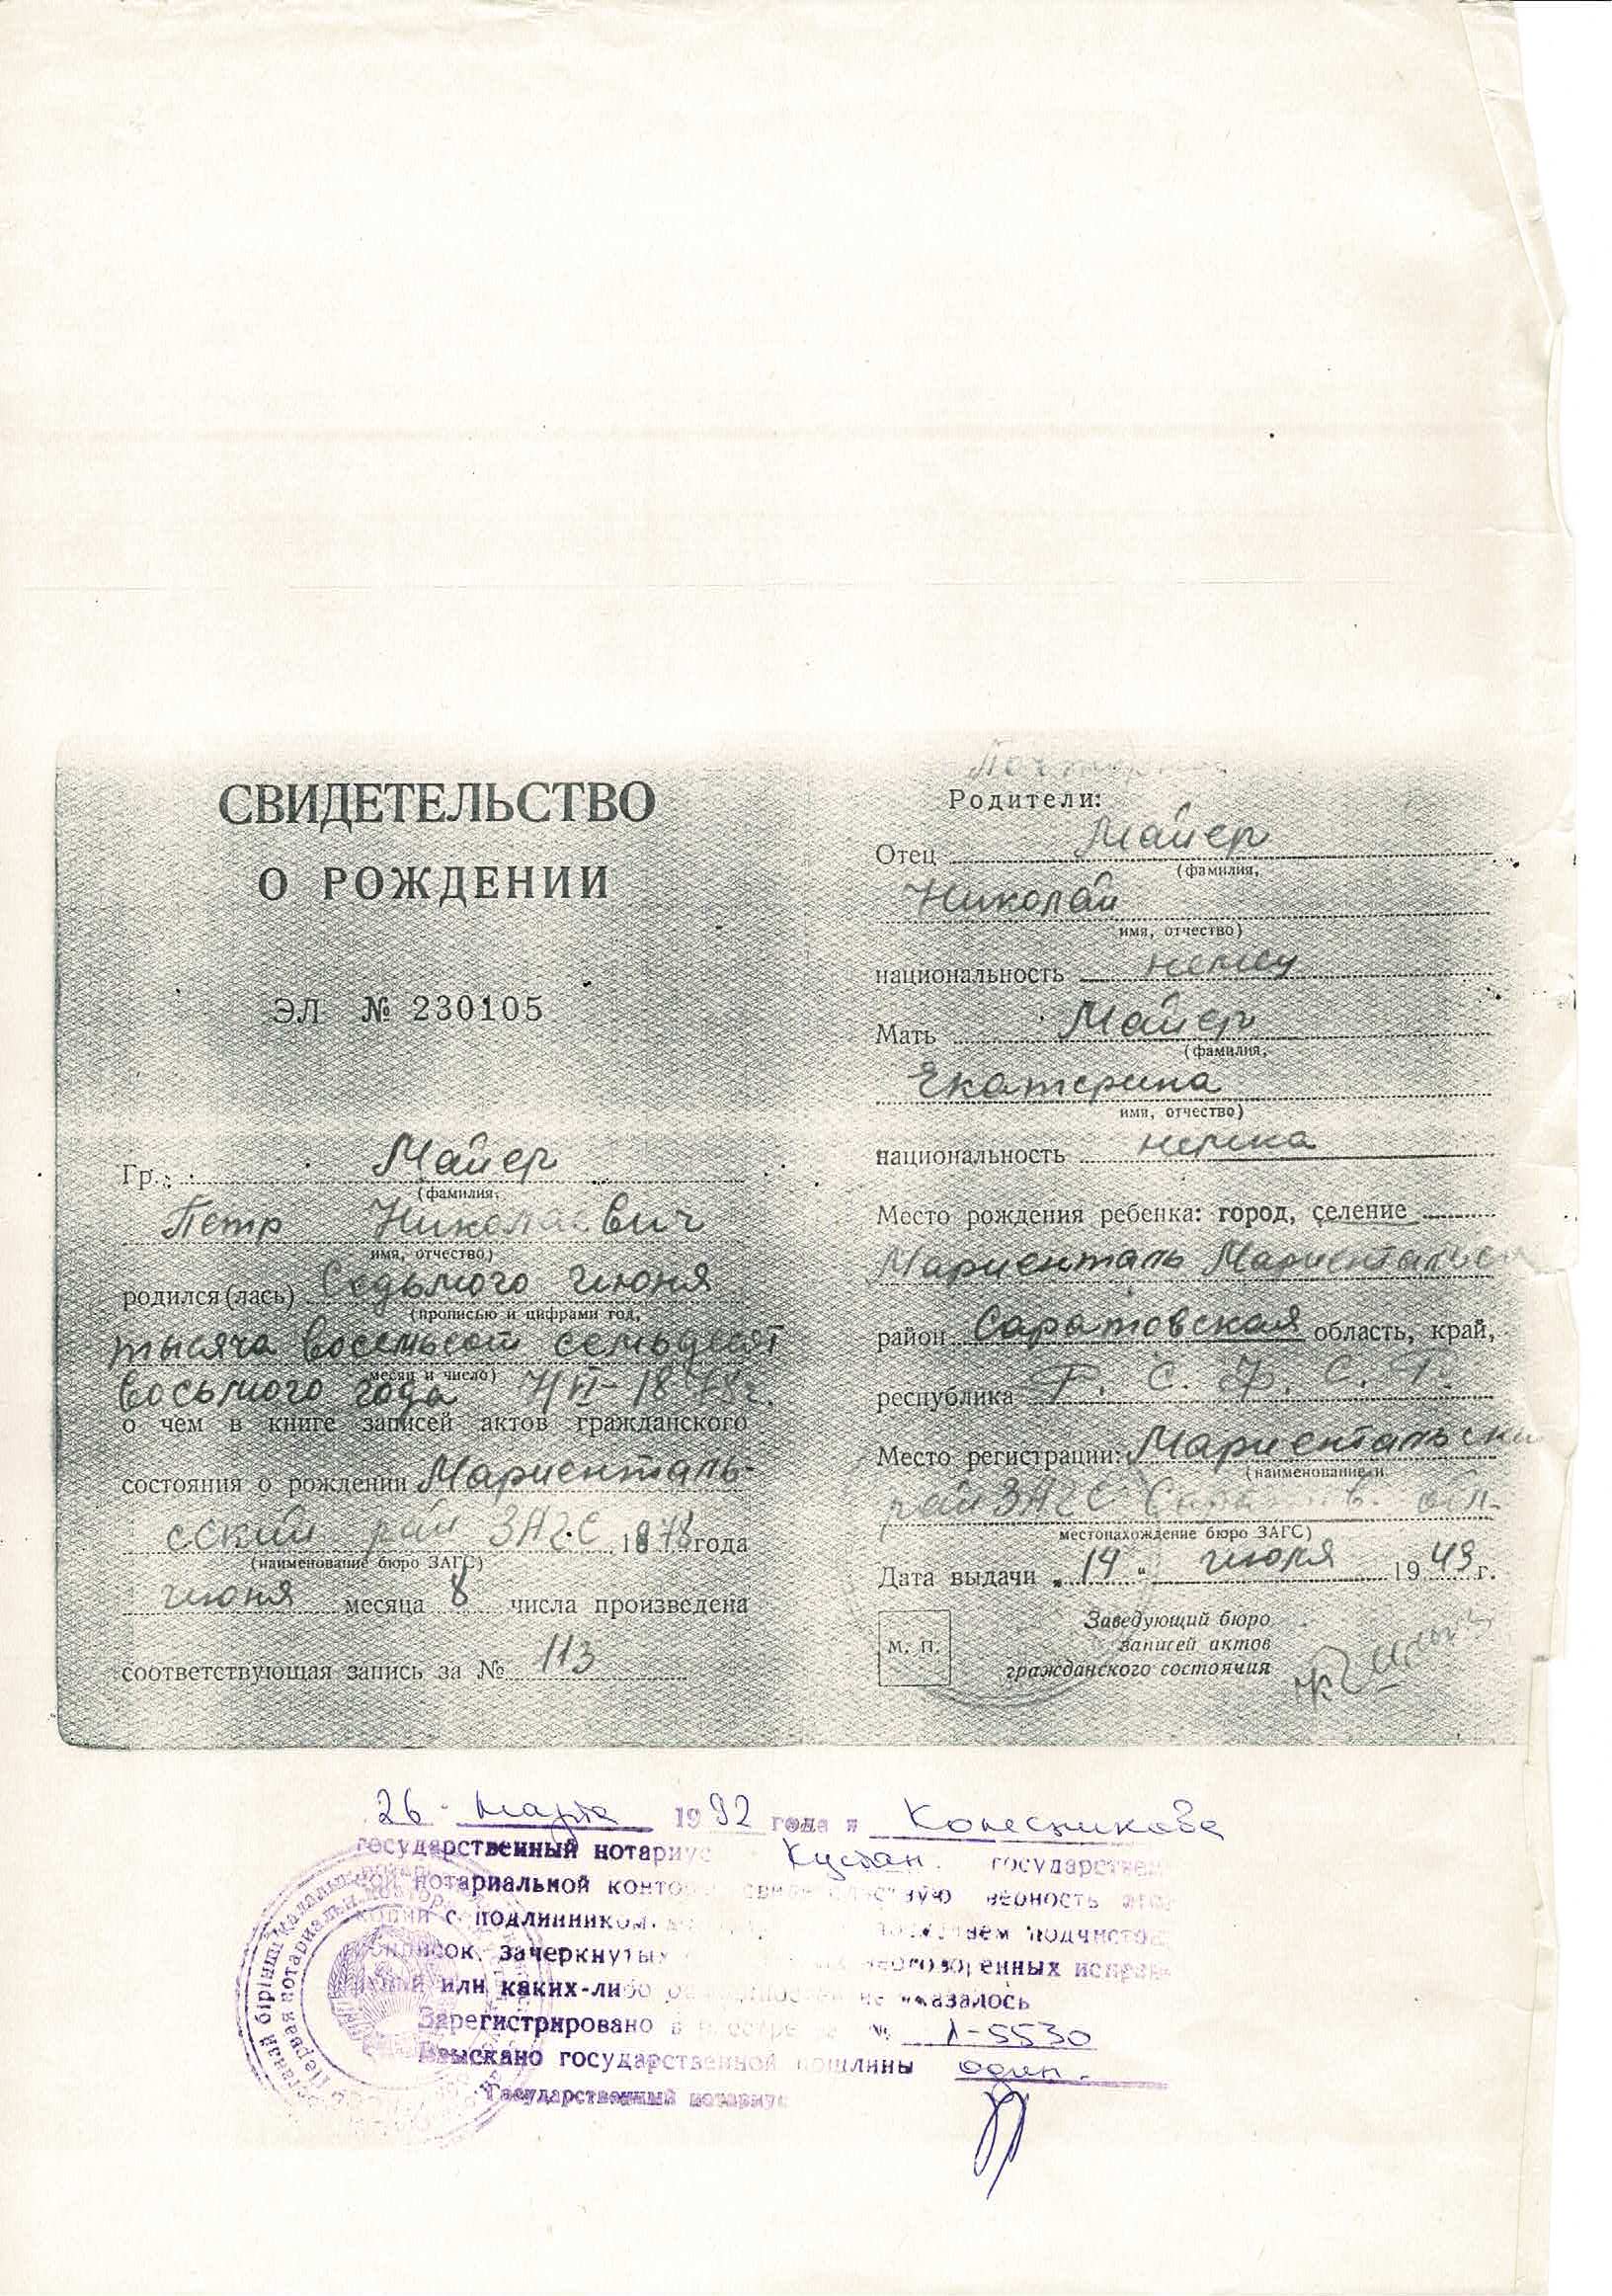 СВИДЕТЕЛЬСТВО
О РОЖДЕНИИ
ЭЛ № 230105
Гр. Майер
(фамилия,
Петр Николаевич
имя, отчество)
родился(лась) Седьмого июня
(прописью и цифрами год,
тысяча восемьсот семьдесят
месяц и число)
восьмого года 7/VI-1878г.
о чем в книге записей актов гражданского
состояния о рождении Мариенталь-
сский рай ЗАГС 1878 года
(наименование бюро ЗАГС)
июня месяца 8 числа произведена
соответствующая запись за № 113
Родители:
Отец Майер
(фамилия,
Николай
имя, отчество)
национальность немец
Мать Майер
(фамилия,
Екатерина
имя, отчество)
национальность немка
Место рождения ребенка: город, селение
Мариенталь Мариентальск
район Саратовская область, край,
республика Р. С. Ф. С. Р.
Место регистрации: Мариентальски
(наименование и
рай ЗАГС Саратов. обл.
местонахождение бюро ЗАГС)
Дата выдачи „14“ июля 1949 г.
М. П.
Заведующий бюро
записей актов
гражданского состояния
26 марта 1992 года я Колесникова
государственный нотариус Кустан. государствен
ной нотариальной конто свидетельствую верность этой
копии с подлинником.
подчисток
приписок, зачеркнутых неоговоренных исправ
или каких-либо не оказалось
Зарегистрировано в реестре за № 1-5530
Взыскано государственной пошлины один.
Государственный нотариус